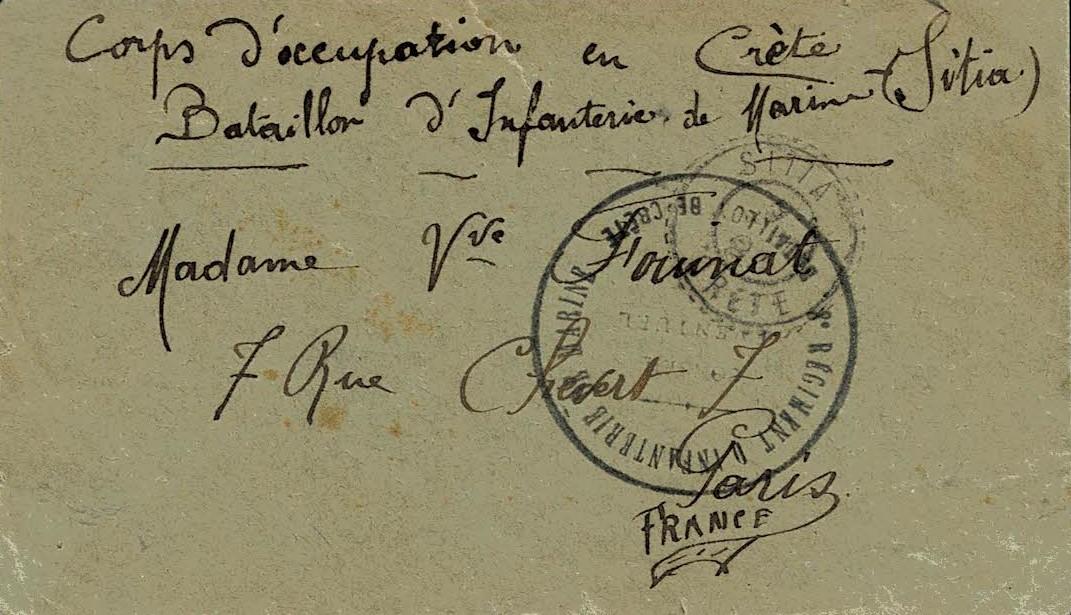 Corps d'occupation en Crète
Bataillon d'Infanterie de Marine (Sitia)
Madame Vve Fournat
7 Rue Chevert 7
Paris
FRANCE
SITIA
CRETE
8e RÉGIMENT D'INFANTERIE DE MARINE
DE CRÈTE